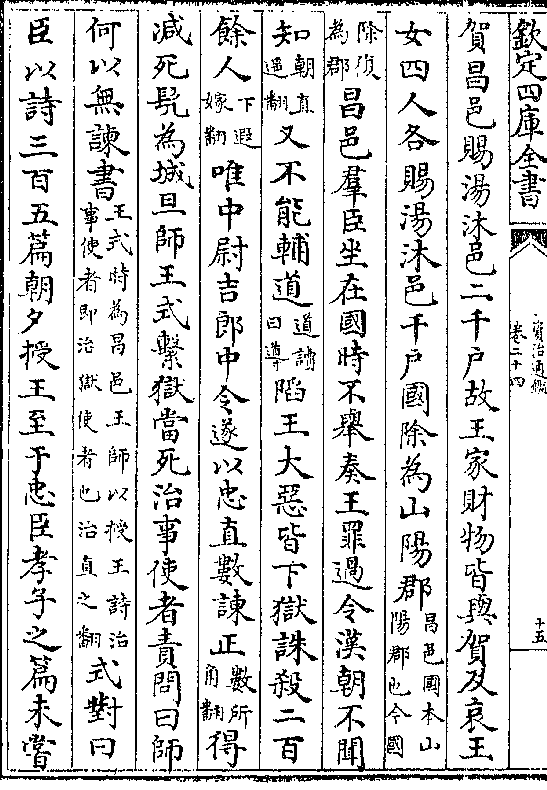 欽定四庫全書
資治通鑑
卷二十四
十五
賀昌邑賜湯沐邑二千户故王家財物皆與賀及哀王
女四人各賜湯沐邑千户國除為山陽郡昌邑國本山陽郡也今國
除復為郡昌邑羣臣坐在國時不舉奏王罪過令漢朝不聞
知朝直遥翻又不能輔道道讀曰導陷王大惡皆下獄誅殺二百
餘人下遐嫁翻唯中尉吉郎中令遂以忠直數諫正數所角翻得
減死髡為城旦師王式繫獄當死治事使者責問曰師
何以無諫書王式時為昌邑王師以授王詩治事使者即治獄使者也治直之翻式對曰
臣以詩三百五篇朝夕授王至于忠臣孝子之篇未嘗